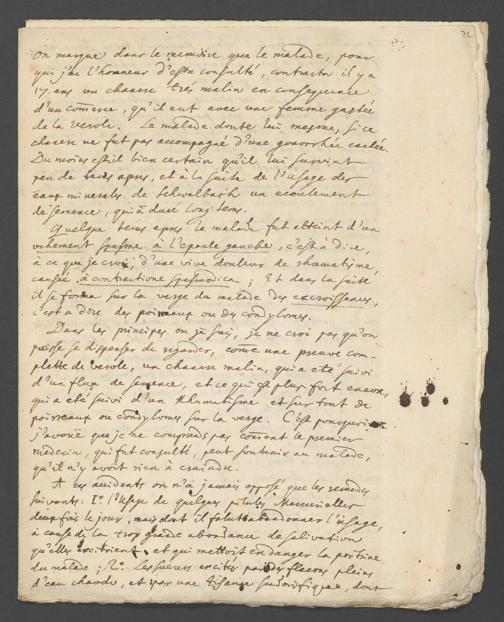 21
on marque dans le memoire que le malade, pour
qui j'ai l'honneur d'estre consulté, contracta il y a
17. ans un chancre très malin en consequence
d'un comerce, qu'il eut avec une femme gastée
de la verole. Le malade doute lui mesme, si ce
chancre ne fut pas accompagné d'une gonorrhée cachée.
Du moins est il bien certain qu'il lui survint
peu de tems apres, et à la suite de l'usage des
eaux minerales de Schwalbach un ecoulement
de semence, qui a duré long tems.
Quelque tems apres le malade fut atteint d'un
vehement spasme à l'epaule gauche, c'est à dire,
à ce que je croi, d'une vive douleur de rhumatisme,
causée à contractione spasmodica; Et dans la suite
il se forma sur la verge du malade des excroissances,
c'est a dire des poireaux ou des condylomes.
Dans les principes ou je suis, je ne croi pas qu'on
puisse se dispenser de regarder, come une preuve com-
plette de verole, un chancre malin, qui a été suivi
d'un flux de semence, et ce qui est plus fort encore,
qui a été suivi d'un rhumatisme et sur tout de
poireaux ou condylomes sur la verge. C'est pourquoi
j'avoüe que je ne comprends pas coment le premier
medecin, qui fut consulté, peut soutenir au malade,
qu'il n'y avoit rien à craindre.
A ces accidents on n'a jamais opposé que les remedes
suivants. 1.° l'usage de quelques pilules Mercurielles
deux fois le jour, mais dont il falut abandonner l'usage,
à cause de la trop grande abondance de salivation
qu'elles excitoient, et qui mettoit en danger la poitrine
du malade; 2.° Les sueurs excitées par des flacons pleins
d'eau chaude, et par une tisane sudorifique, dont